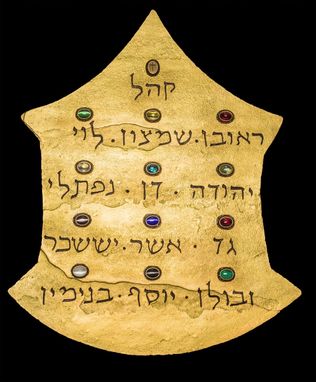 קהל
ראובן · שמצון · לוי
יהודה · דן · נפתלי
גד · אשר · יששכר
זבולן · יוסף · בנימין